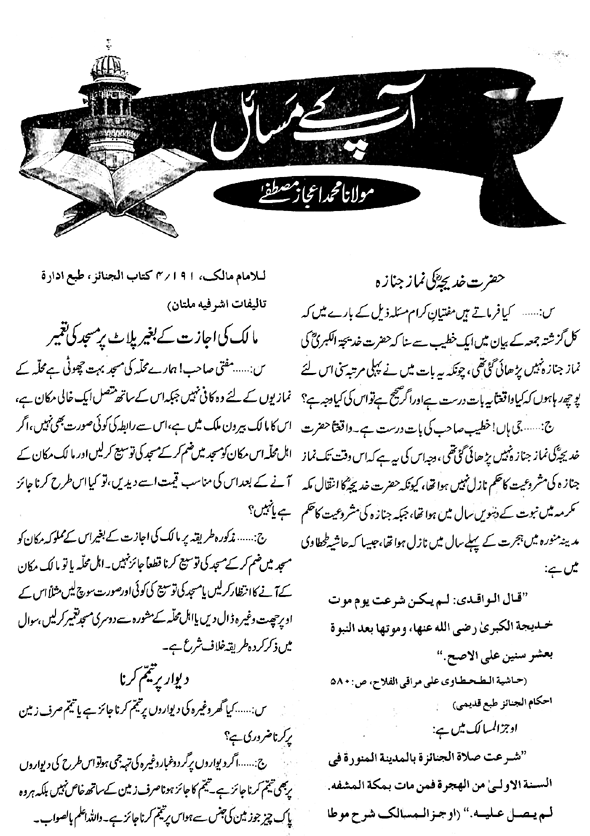 آپ کے مسائل
مولانا محمد اعجاز مصطفیٰ
حضرت خدیجہؓ کی نماز جنازہ
س:...... کیا فرماتے ہیں مفتیان کرام مسئلہ ذیل کے بارے میں کہ
کل گزشتہ جمعہ کے بیان میں ایک خطیب سے سنا کہ حضرت خدیجۃ الکبریٰؓ کی
نماز جنازہ نہیں پڑھائی گئی تھی، چونکہ یہ بات میں نے پہلی مرتبہ سنی اس لئے
پوچھ رہا ہوں کہ کیا واقعتاً یہ بات درست ہے اور اگر صحیح ہے تو اس کی کیا وجہ ہے؟
ج:...... جی ہاں! خطیب صاحب کی بات درست ہے۔ واقعتاً حضرت
خدیجہؓ کی نماز جنازہ نہیں پڑھائی گئی تھی، وجہ اس کی یہ ہے کہ اس وقت تک نماز
جنازہ کی مشروعیت کا حکم نازل نہیں ہوا تھا، کیونکہ حضرت خدیجہؓ کا انتقال مکہ
مکرمہ میں نبوت کے دسویں سال میں ہوا تھا، جبکہ جنازہ کی مشروعیت کا حکم
مدینہ منورہ میں ہجرت کے پہلے سال میں نازل ہوا تھا، جیسا کہ حاشیہ طحطاوی
میں ہے:
”قال الواقدی: لم یکن شرعت یوم موت
خدیجة الکبریٰ رضی الله عنها، وموتها بعد النبوة
بعشر سنین علی الاصح.“
(حاشیة الطحطاوی علی مراقی الفلاح، ص:۵۸۰
احکام الجنائز طبع قدیمی)
اوجز المسالک میں ہے:
”شرعت صلاة الجنازة بالمدینة المنورة فی
السنة الاولیٰ من الهجرة فمن مات بمکة المشفه.
لم یصل علیه.“ (اوجز المسالک شرح موطا
للامام مالک، ۴/۱۹۱ کتاب الجنائز، طبع ادارة
تالیفات اشرفیه ملتان)
مالک کی اجازت کے بغیر پلاٹ پر مسجد کی تعمیر
س:...... مفتی صاحب! ہمارے محلّہ کی مسجد بہت چھوٹی ہے محلّہ کے
نمازیوں کے لئے وہ کافی نہیں جبکہ اس کے ساتھ متصل ایک خالی مکان ہے،
اس کا مالک بیرون ملک میں ہے، اس سے رابطہ کی کوئی صورت بھی نہیں، اگر
اہل محلّہ اس مکان کو مسجد میں ضم کر کے مسجد کی توسیع کرلیں اور مالک مکان کے
آنے کے بعد اس کی مناسب قیمت اسے دیدیں، تو کیا اس طرح کرنا جائز
ہے یا نہیں؟
ج:...... مذکورہ طریقہ پر مالک کی اجازت کے بغیر اس کے مملوکہ مکان کو
مسجد میں ضم کر کے مسجد کی توسیع کرنا قطعاً جائز نہیں۔ اہل محلّہ یا تو مالک مکان
کے آنے کا انتظار کرلیں یا مسجد کی توسیع کی کوئی اور صورت سوچ لیں مثلاً اس کے
اوپر چھت وغیرہ ڈال دیں یا اہل محلّہ کے مشورہ سے دوسری مسجد تعمیر کرلیں، سوال
میں ذکر کردہ طریقہ خلاف شرع ہے۔
دیوار پر تیمّم کرنا
س:...... کیا گھر وغیرہ کی دیواروں پر تیمّم کرنا جائز ہے یا تیمّم صرف زمین
پر کرنا ضروری ہے؟
ج:...... اگر دیواروں پر گرد و غبار وغیرہ کی تہہ جمی ہو تو اس طرح کی دیواروں
پر بھی تیمّم جائز ہے۔ تیمّم کا جائز ہونا صرف زمین کے ساتھ خاص نہیں بلکہ ہر وہ
پاک چیز جو زمین کی جنس سے ہو اس پر تیمّم کرنا جائز ہے۔ واللہ اعلم بالصواب۔